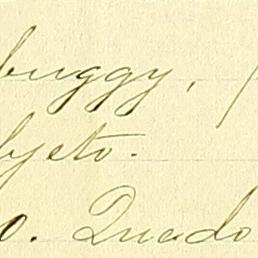 buggy,
bjeto.
o. Quado